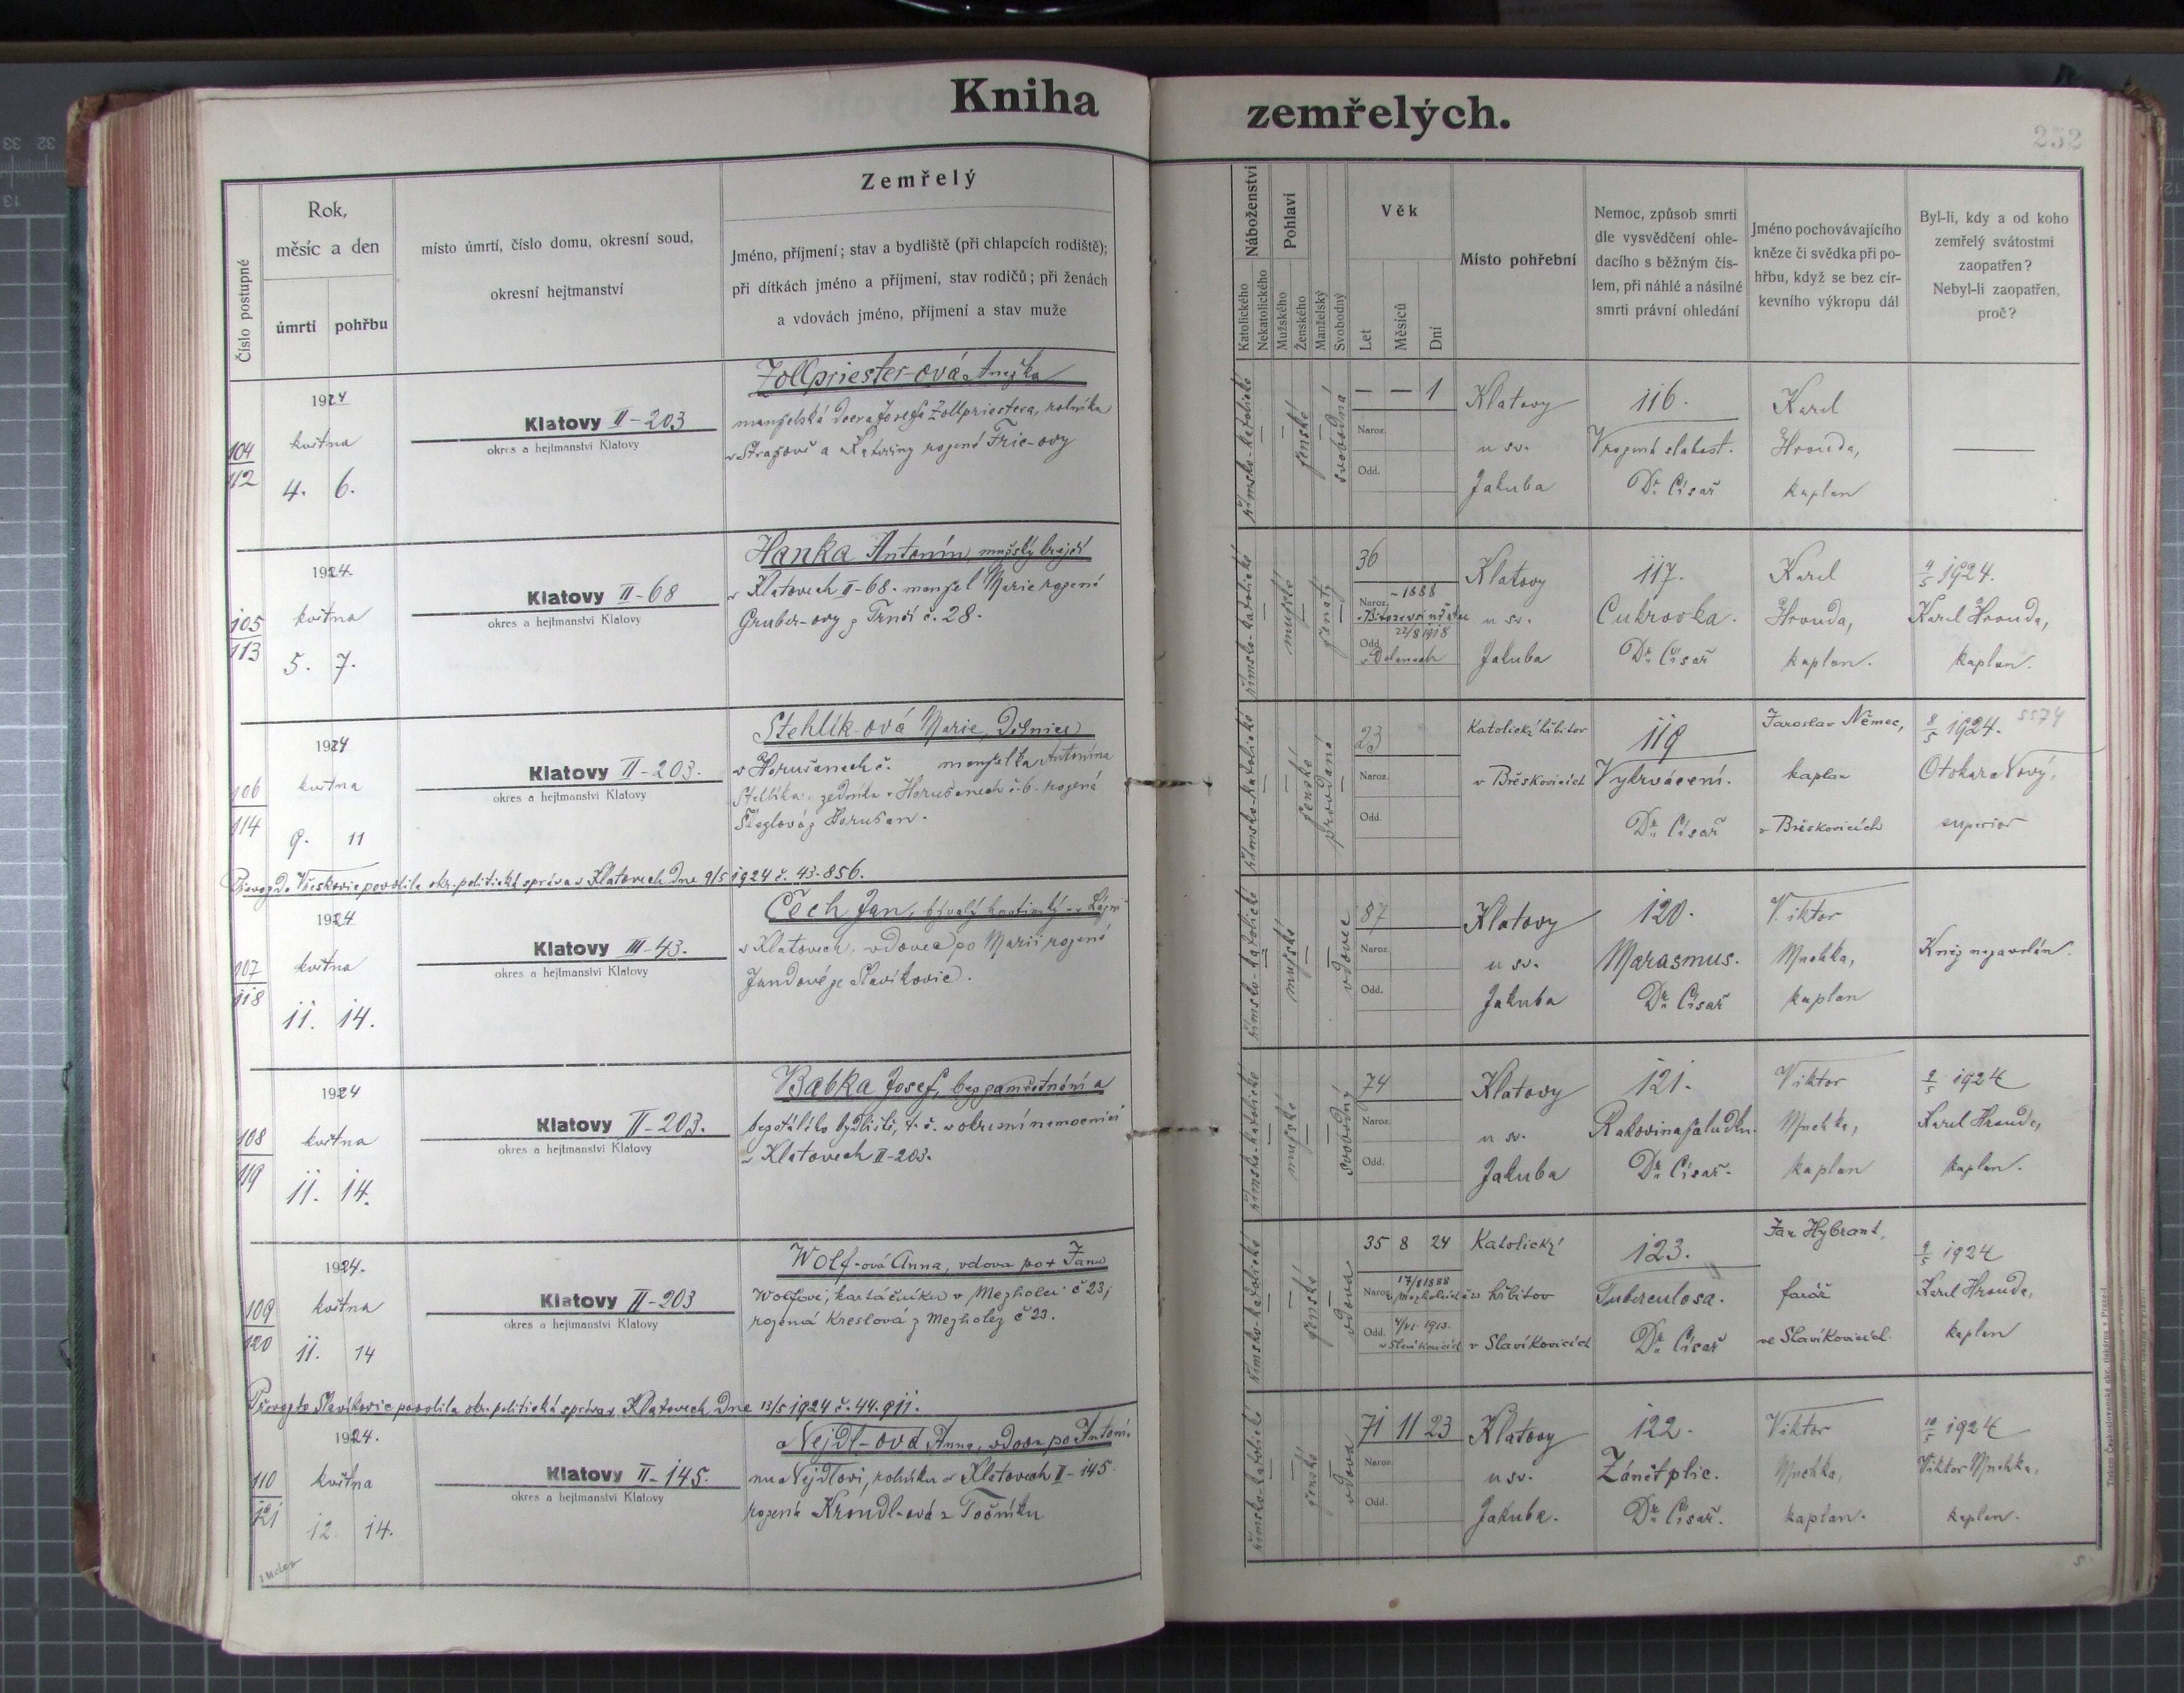 Kniha zemřelých.
252
Číslo postupné
Rok,
měsíc a den
úmrtí pohřbu
místo úmrtí, číslo domu, okresní soud,
okresní hejtmanství
Zemřelý
Jméno, příjmení; stav a bydliště (při chlapcích rodiště);
při dítkách jméno a příjmení, stav rodičů; při ženách
a vdovách jméno, příjmení a stav muže
Náboženství
Katolického
Nekatolického
Pohlaví
Mužského
Ženského
Manželský
Svobodný
Věk
Let
Měsíců
Dní
Místo pohřební
Nemoc, způsob smrti
dle vysvědčení ohle-
dacího s běžným čís-
lem, při náhlé a násilné
smrti právní ohledání
Jméno pochovávajícího
kněze či svědka při po-
hřbu, když se bez cír-
kevního výkropu dál
Byl-li, kdy a od koho
zemřelý svátostmi
zaopatřen?
Nebyl-li zaopatřen,
proč?
104
112
1924
května
4. 6.
Klatovy II-203
okres a hejtmanství Klatovy
Zollpriester-ová Anežka
manželská dcera Josefa Zollpriestera, rolníka
a Kateřiny rozené
římsko-katolické
ženské
svobodná
— — 1
Naroz.
Odd.
Klatovy
u sv.
Jakuba
116.
Vrozená slabost.
Dr. Císař
Karel
Hronda,
kaplan
—
105
113
1924.
května
5. 7.
Klatovy II-68
okres a hejtmanství Klatovy
Hanka Antonín, mužský krejčí
v Klatovech II-68. manžel Marie rozené
Gruber-ovy z Trnčí č. 28.
římsko-katolické
mužské
ženatý
36
Naroz. 1888
Odd. 22/8 1918
v Dolanech
Klatovy
u sv.
Jakuba
117.
Cukrovka.
Dr. Císař
Karel
Hronda,
kaplan.
4/5 1924.
Karel Hronda,
kaplan.
106
114
1924
května
9. 11
Klatovy II-203.
okres a hejtmanství Klatovy
Stehlík-ová Marie, dělnice
v Horušanech č. manželka Antonína
Stehlíka, zedníka v Horušanech č. 6. rozená
z Horušan.
Převoz do povolila okr. politická správa v Klatovech dne 9/5 1924 č. 43.856.
římsko-katolické
ženské
provdaná
23
Naroz.
Odd.
Katolický hřbitov
v Břěskovicích
119
Vykrvácení.
Dr. Císař
Jaroslav Němec,
kaplan
v Břěskovicích
8/5 1924. 5574
Otokar Nový,
superior
107
118
1924
května
11. 14.
Klatovy III-43.
okres a hejtmanství Klatovy
Čech Jan, bývalý hostinský
v Klatovech, vdovec po Marii rozené
Jandové ze Slavíkovic.
římsko-katolické
mužské
vdovec
87
Naroz.
Odd.
Klatovy
u sv.
Jakuba
120.
Marasmus.
Dr. Císař
Viktor
Muchka,
kaplan
Kněz nezavolán.
108
119
1924
května
11. 14.
Klatovy II-203.
okres a hejtmanství Klatovy
Babka Josef, bez zaměstnání a
bez stálého bydliště, t. č. v okresní nemocnici
v Klatovech II-203.
římsko-katolické
mužské
svobodný
74
Naroz.
Odd.
Klatovy
u sv.
Jakuba
121.
Rakovina žaludku.
Dr. Císař.
Viktor
Muchka,
kaplan
9/5 1924
Karel Hronda,
kaplan.
109
120
1924.
května
11. 14
Klatovy II-203
okres a hejtmanství Klatovy
Wolf-ová Anna, vdova po † Janu
Wolfovi, kartáčníku v Mezholezi č 23;
rozená Kreslová z Mezholez č 23.
Převoz do Slavíkovic povolila okr. politická správa v Klatovech dne 13/5 1924 č. 44.911.
římsko-katolické
ženské
vdova
35 8 24
Naroz. 17/8 1888
Odd. 4/VI. 1913.
v Slavíkovicích
Katolický
hřbitov
v Slavíkovicích
123.
Tuberculosa.
Dr. Císař
Jan Hybrant,
farář
ve Slavíkovicích.
9/5 1924
Karel Hronda,
kaplan
110
121
1924.
května
12. 14.
Klatovy II-145.
okres a hejtmanství Klatovy
Vejdl-ová Anna, vdova po Antoní-
nu Vejdlovi, rolníku v Klatovech II-145.
rozená Krondl-ová z Točníku
římsko-katolické
ženské
vdova
71 11 23
Naroz.
Odd.
Klatovy
u sv.
Jakuba.
122.
Zánět plic.
Dr. Císař.
Viktor
Muchka,
kaplan.
10/5 1924
Viktor Muchka,
kaplan.